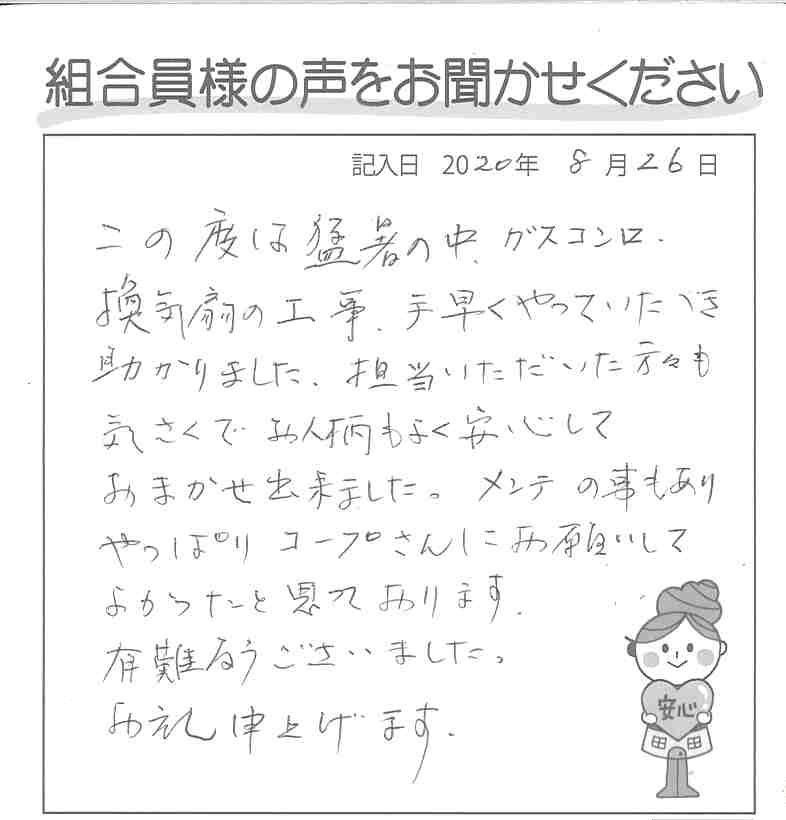 組合員様の声をお聞かせください
記入日 2020年 8月26日
この度は猛暑の中、ガスコンロ.
換気扇の工事、手早くやっていただき
助かりました、担当いただいた方々も
気さくでお人柄もよく安心して
おまかせ出来ました。メンテの事もあり
やっぱりコープさんにお願いして
よかったと思っております.
有難うございました。
お礼申上げます.
安心